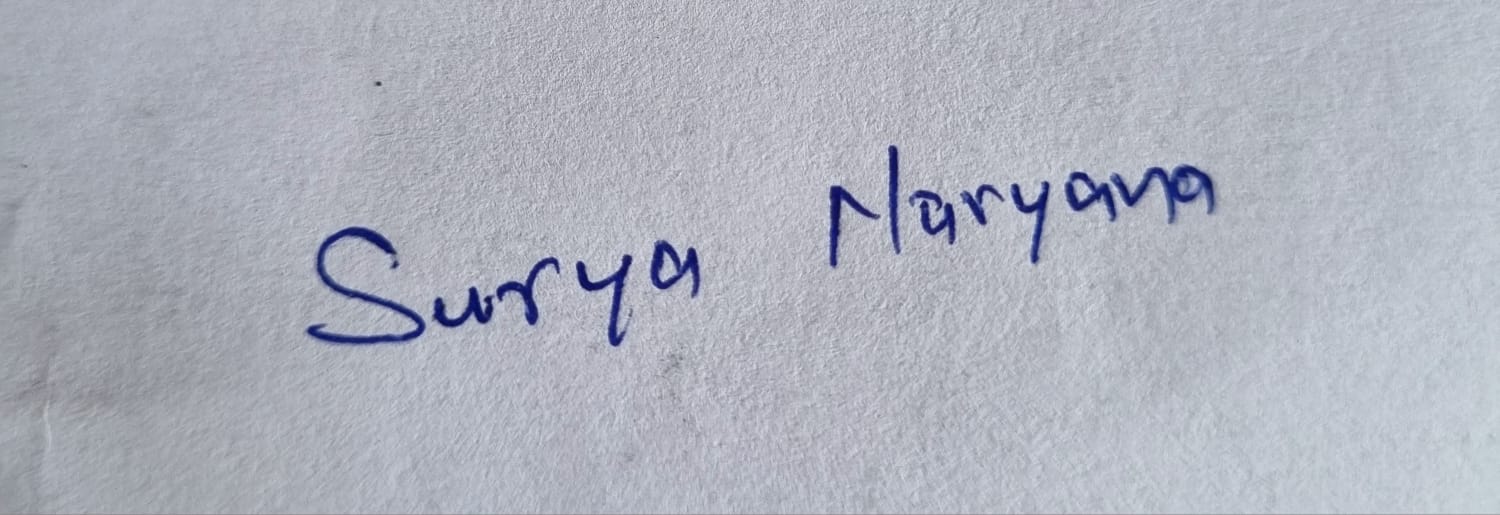 Surya Naryana